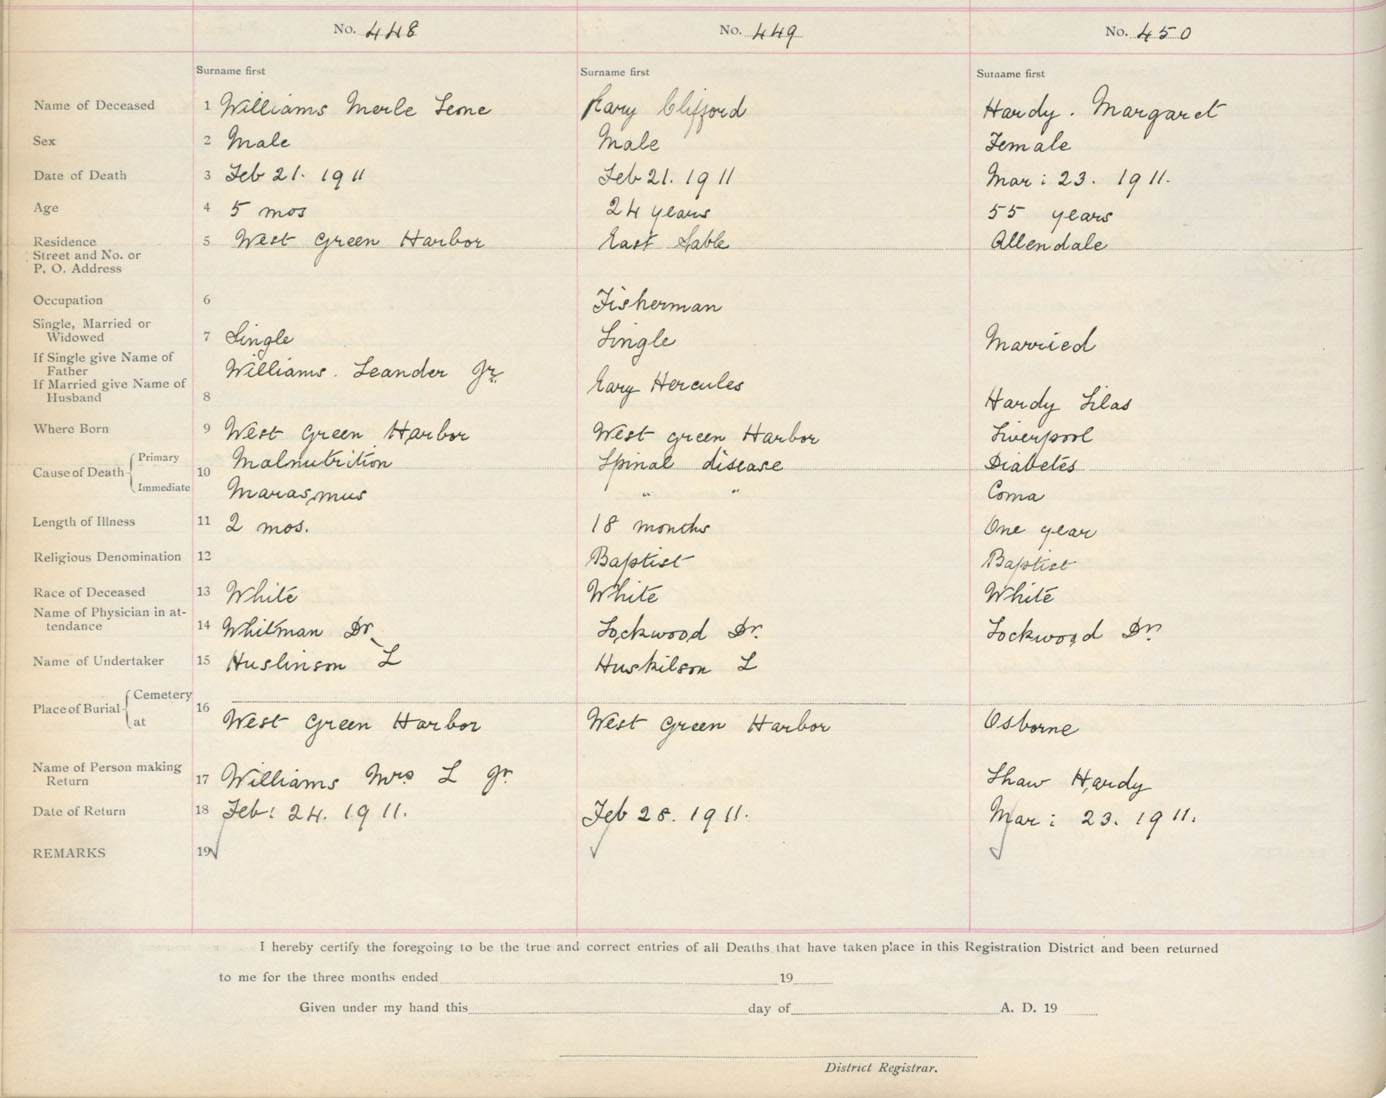 No. 448 No. 449 No. 450
Surname first Surname first Surname first
Name of Deceased 1 Williams Merle Leone Clifford Hardy. Margaret
Sex 2 Male Male Female
Date of Death 3 Feb 21. 1911 Feb 21. 1911 Mar: 23. 1911.
Age 4 5 mos 24 years 55 years
Residence 5 West Green Harbor East Sable Allendale
Street and No. or
P. O. Address
Occupation 6 Fisherman
Single, Married or
Widowed 7 Single Single Married
If Single give Name of
Father Williams. Leander Jr.
If Married give Name of Hercules
Husband 8 Hardy Silas
Where Born 9 West Green Harbor West green Harbor Liverpool
Cause of Death Primary 10 Malnutrition Spinal disease Diabetes
Immediate Marasmus " " Coma
Length of Illness 11 2 mos. 18 months One year
Religious Denomination 12 Baptist Baptist
Race of Deceased 13 White White White
Name of Physician in at-
tendance 14 Whitman Dr. Lockwood Dr. Lockwood Dr.
Name of Undertaker 15 Huslinson L Huskilson L
Place of Burial Cemetery 16
at West Green Harbor West Green Harbor Osborne
Name of Person making
Return 17 Williams Mrs L Jr. Shaw Hardy
Date of Return 18 Feb: 24. 1911. Feb 28. 1911. Mar: 23. 1911.
REMARKS 19
I hereby certify the foregoing to be the true and correct entries of all Deaths that have taken place in this Registration District and been returned
to me for the three months ended 19
Given under my hand this day of A. D. 19
District Registrar.